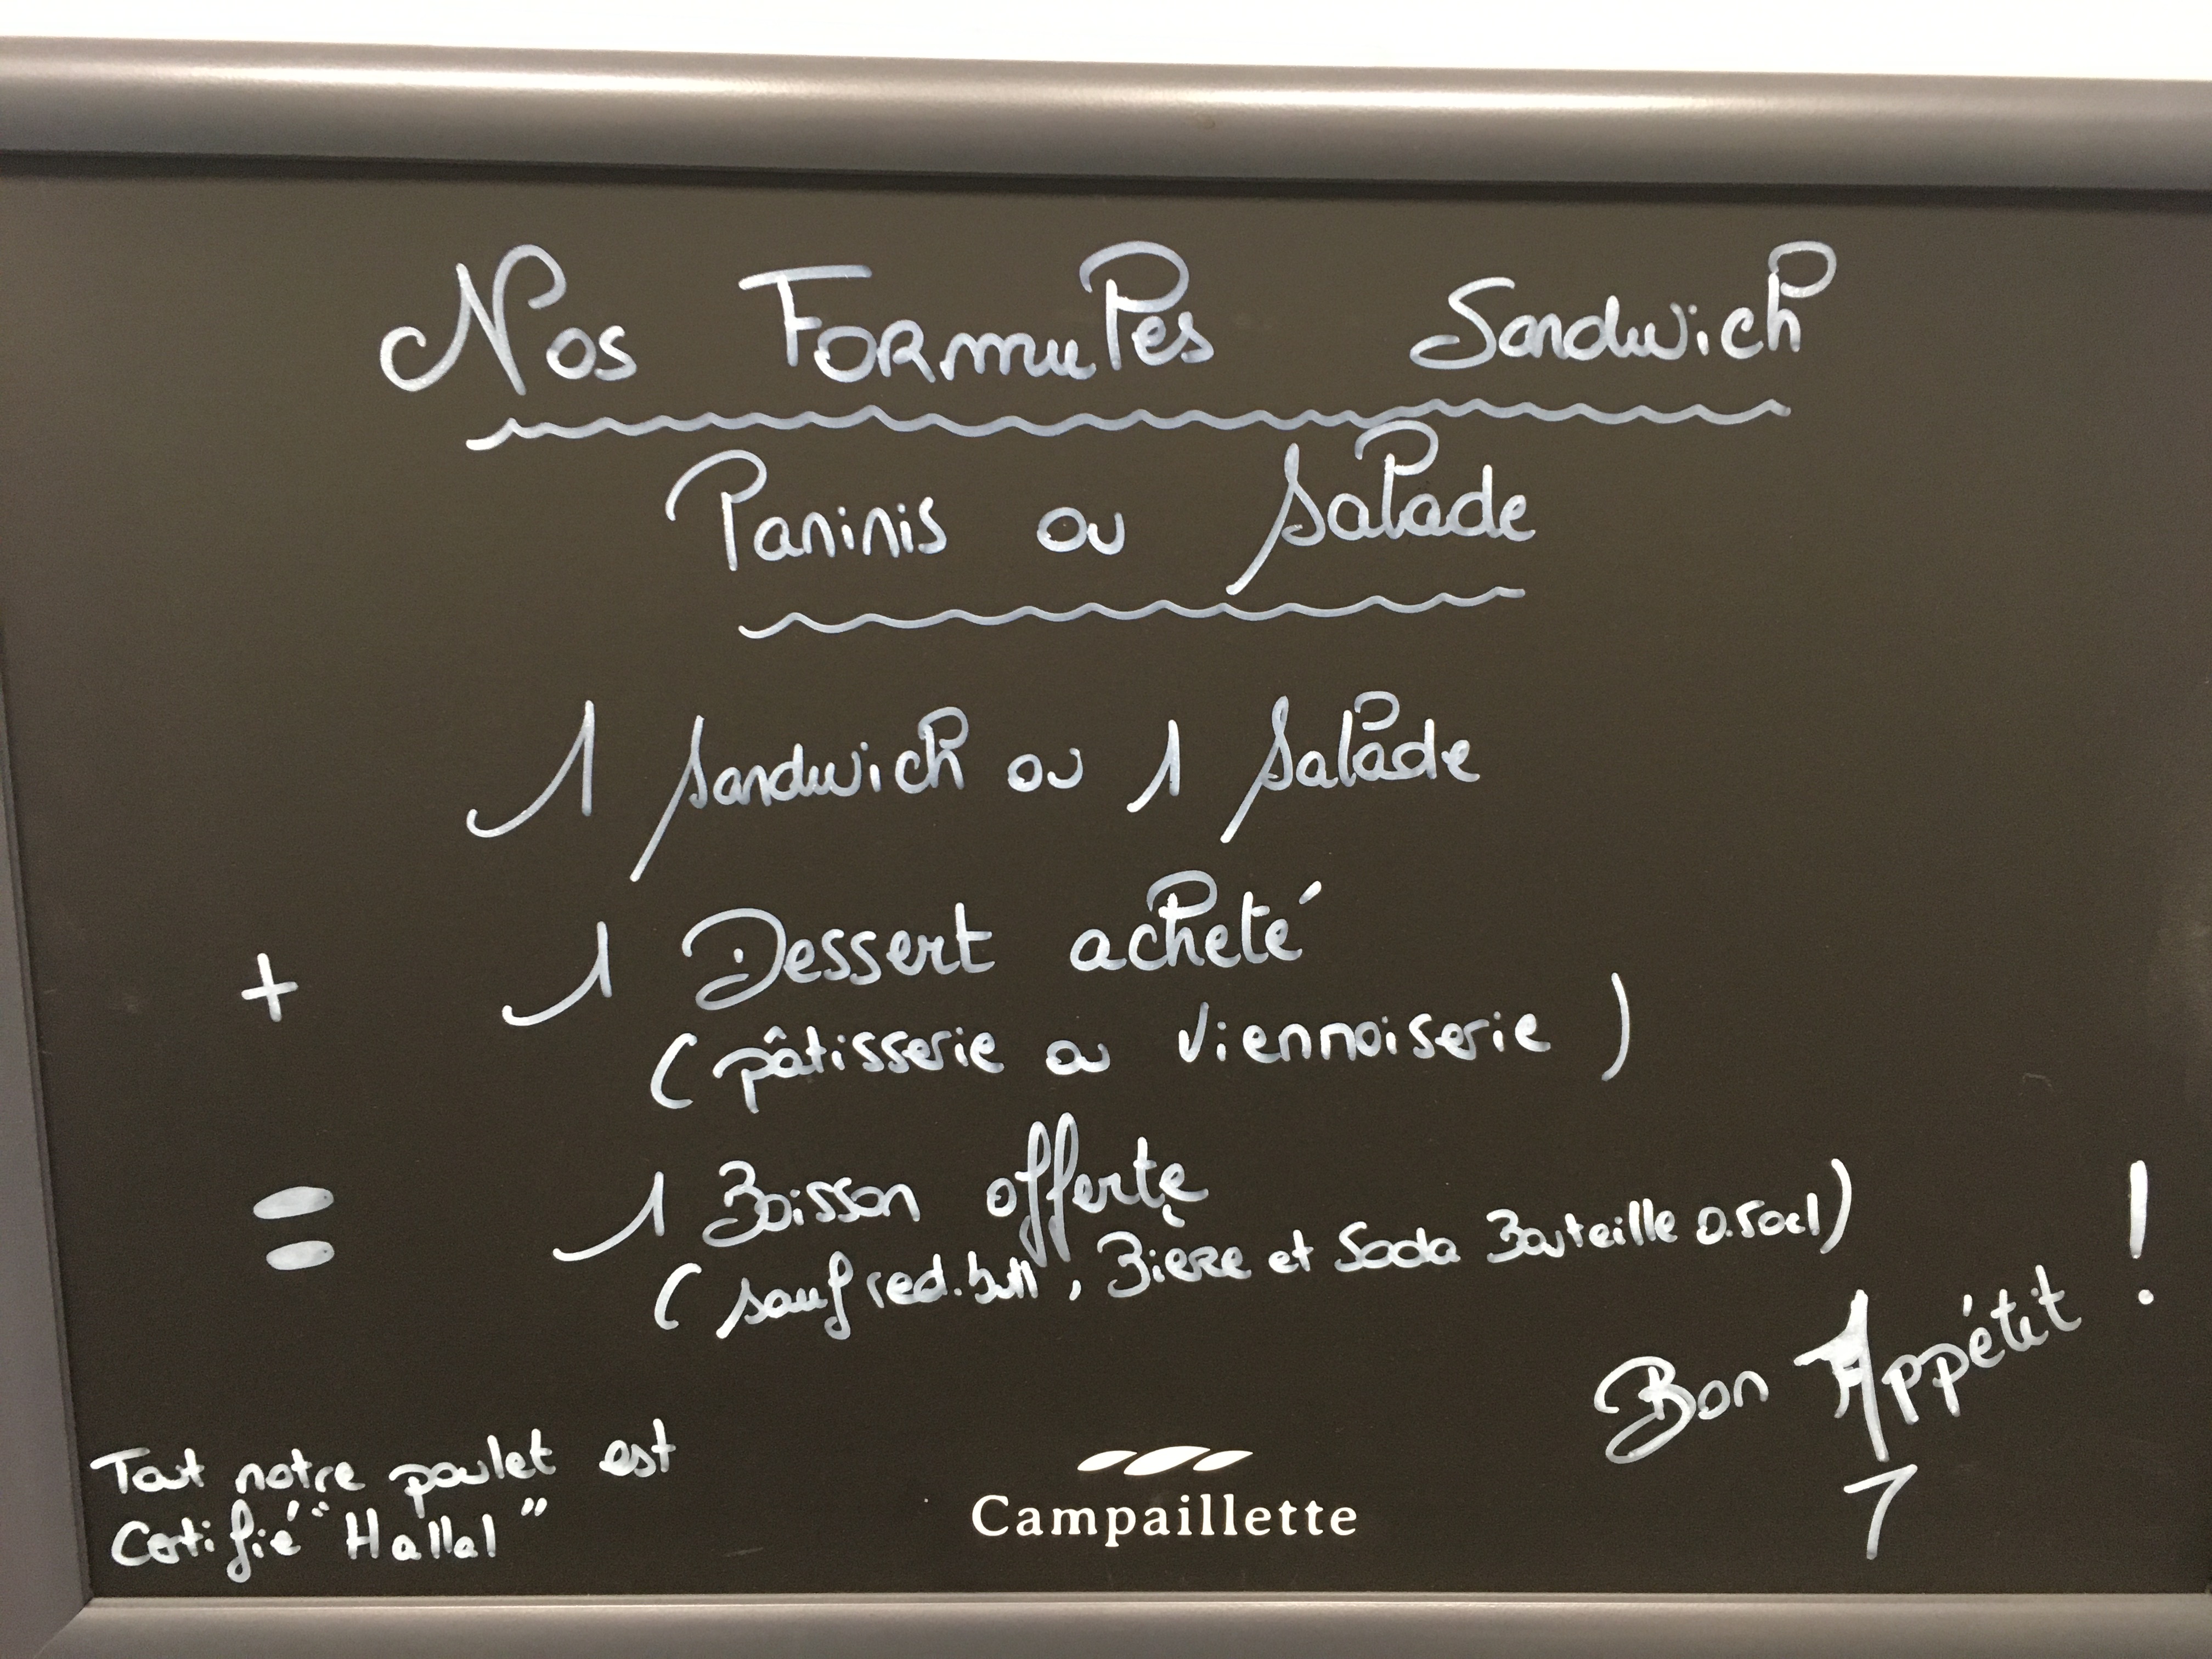 Nos Formules Sandwich
Paninis ou Salade
1 Sandwich ou 1 Salade
+ 1 Dessert acheté
( pâtisserie ou Viennoiserie )
= 1 Boisson offerte
( sauf red.bull, Bière et Soda Bouteille 0.50cl)
Bon Appétit !
Tout notre poulet est
Certifié "Hallal"
Campaillette